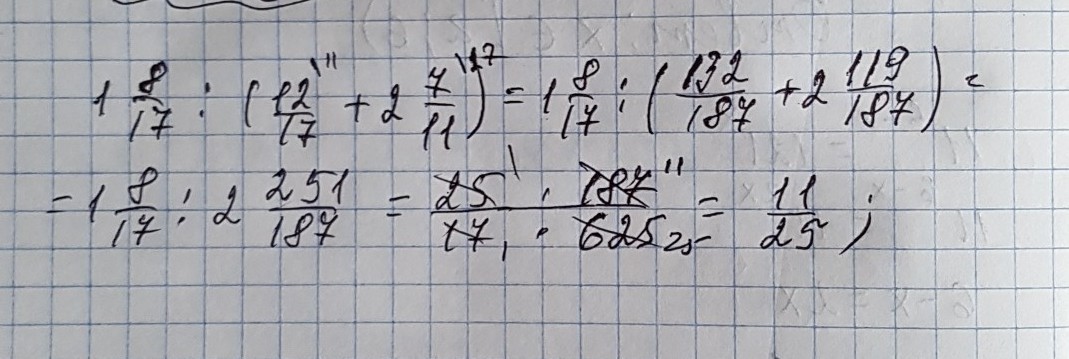 1 8/17 : (12/17 \11 + 2 7/11 \17) = 1 8/17 : (132/187 + 2 119/187) =
= 1 8/17 : 2 251/187 = 25 \1 · 187 11 / 17 1 · 625 25 = 11/25 ;